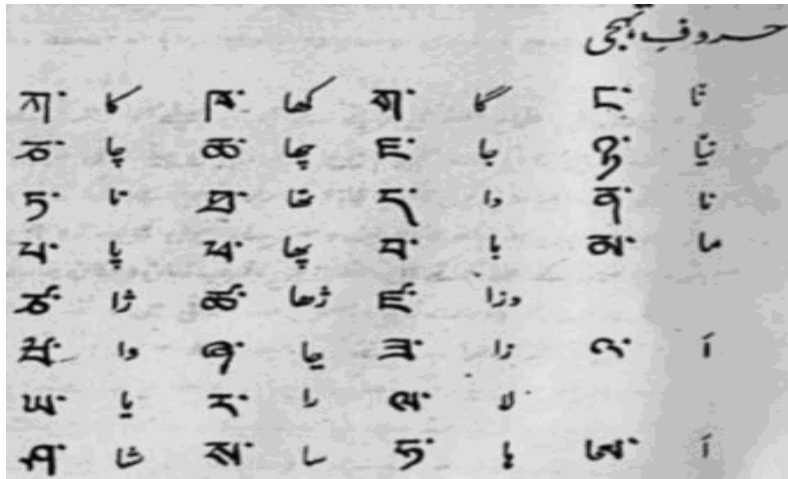 حروفِ تہجی
ཀ་ کا ཁ་ کھا ག་ گا ང་
ཅ་ چا ཆ་ چھا ཇ་ جا ཉ་ نیا
ཏ་ تا ཐ་ تھا ད་ دا ན་ نا
པ་ پا ཕ་ پھا བ་ با མ་ ما
ཙ་ ژا ཚ་ ژھا ཛ་ وزا
ཝ་ وا ཞ་ ཟ་ زا འ་ اَ
ཡ་ یا ར་ را ལ་ لا
ཤ་ شا ས་ سا ཧ་ ہا ཨ་ اَ